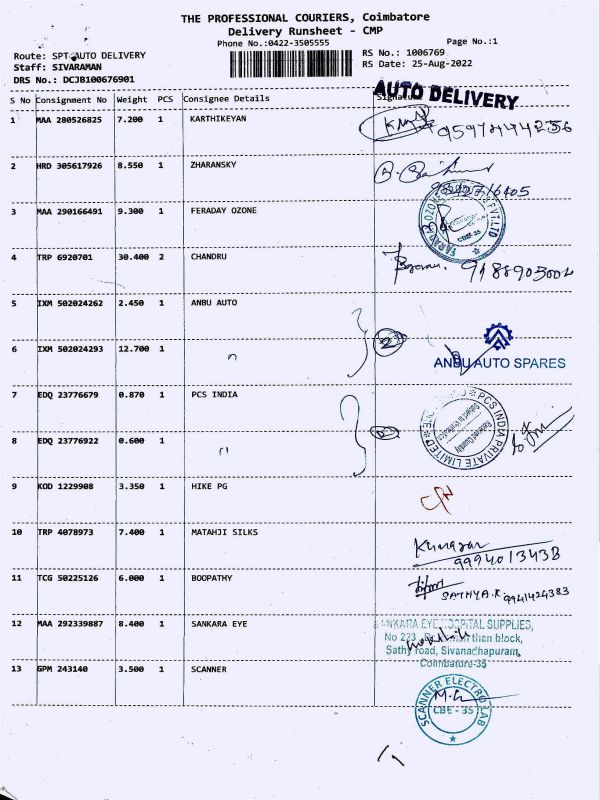 THE PROFESSIONAL COURIERS, Coimbatore
Delivery Runsheet - CMP
Phone No.:0422-3505555
Page No.:1
Route: SPT AUTO DELIVERY
RS No.: 1006769
Staff: SIVARAMAN
RS Date: 25-Aug-2022
DRS No.: DCJB100676901
AUTO DELIVERY
S No Consignment No Weight PCS Consignee Details Signature
1 MAA 280526825 7.200 1 KARTHIKEYAN
2 HRD 305617926 8.550 1 ZHARANSKY
3 MAA 290166491 9.300 1 FERADAY OZONE
CBE-35
4 TRP 6920701 30.400 2 CHANDRU
5 IXM 502024262 2.450 1 ANBU AUTO
2
6 IXM 502024293 12.700 1 "
ANBU AUTO SPARES
7 EDQ 23776679 0.870 1 PCS INDIA
PCS INDIA PRIVATE LIMITED
8 EDQ 23776922 0.600 1 "
9 KOD 1229908 3.350 1 HIKE PG
10 TRP 4078973 7.400 1 MATAHJI SILKS
9994013438
11 TCG 50225126 6.000 1 BOOPATHY
SATHYA.K 9941424383
12 MAA 292339887 8.400 1 SANKARA EYE
SANKARA EYE HOSPITAL SUPPLIES,
No 223, than block,
Sathy road, Sivanadhapuram,
Coimbatore-35
13 GPM 243140 3.500 1 SCANNER
SCANNER ELECTRO LAB
CBE - 35